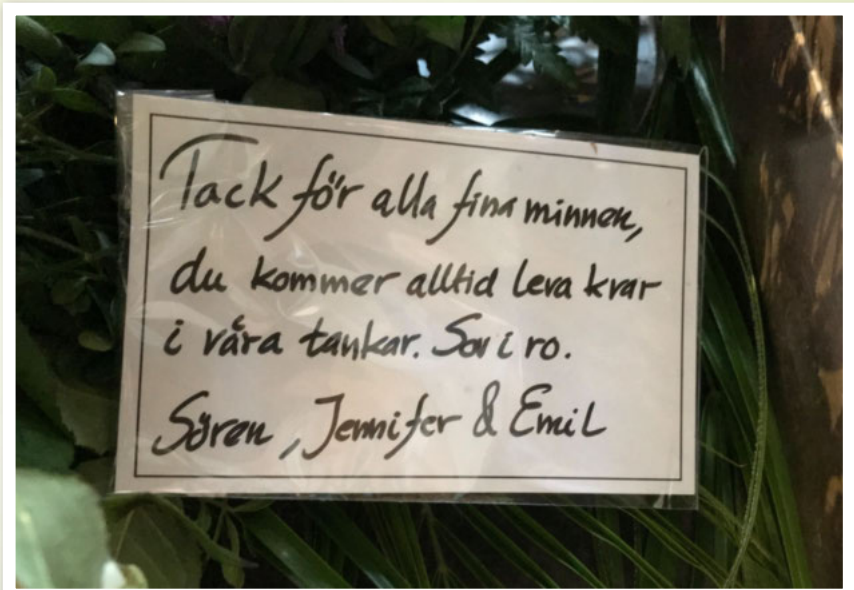 Tack för alla fina minnen,
du kommer alltid leva kvar
i våra tankar. Sov i ro.
Sören, Jennifer & Emil